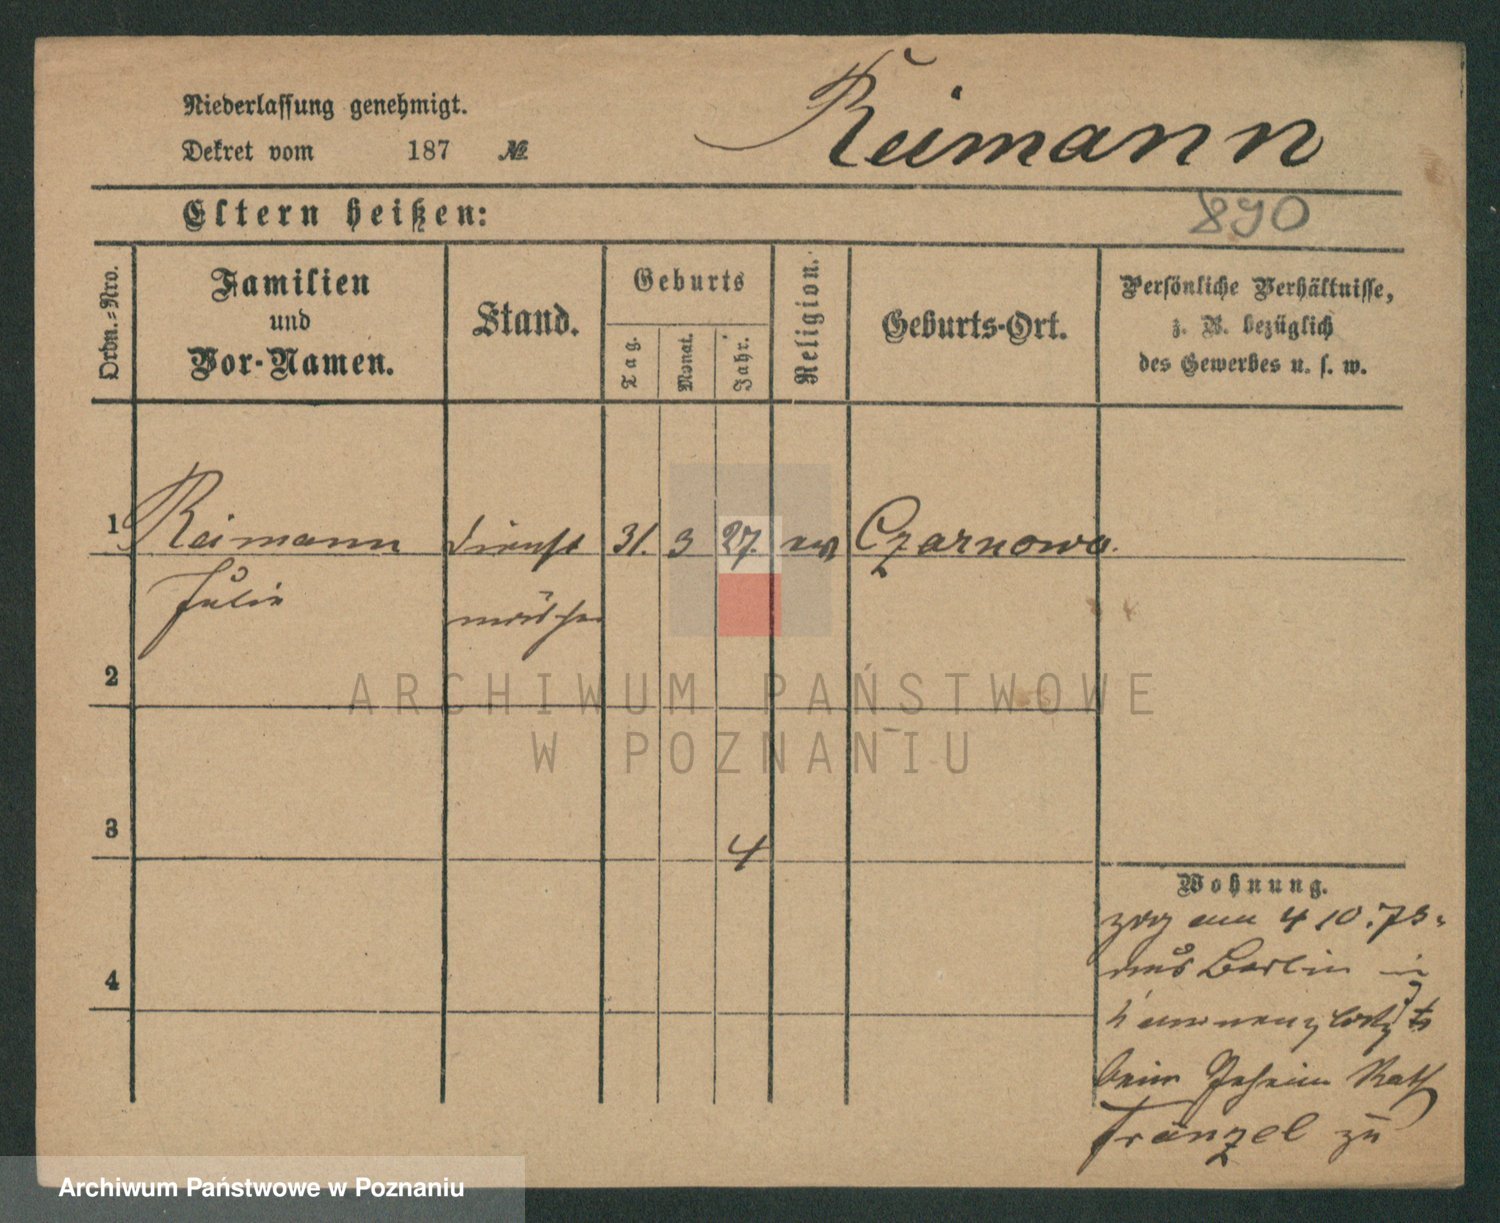 Niederlassung genehmigt.
Dekret vom 187 №
Reimann
Eltern heißen:
890
Ordn.-Nro.
Familien
und
Vor-Namen.
Stand.
Geburts
Tag.
Monat.
Jahr.
Religion.
Geburts-Ort.
Persönliche Verhältnisse,
z. B. bezüglich
des Gewerbes u. s. w.
1 Reimann Dienst 31. 3 27. ev Czarnowo.
Julie mädchen
2
ARCHIWUM PAŃSTWOWE
W POZNANIU
3
4
Wohnung.
zog am 4 10. 73.
aus Berlin in
4
beim Geheim Rath
Franzel zu
Archiwum Państwowe w Poznaniu